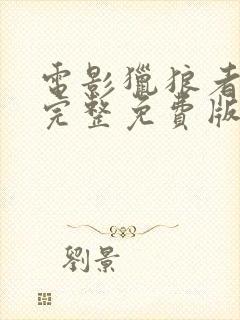 電影獵狼者
完整免費版
劉景